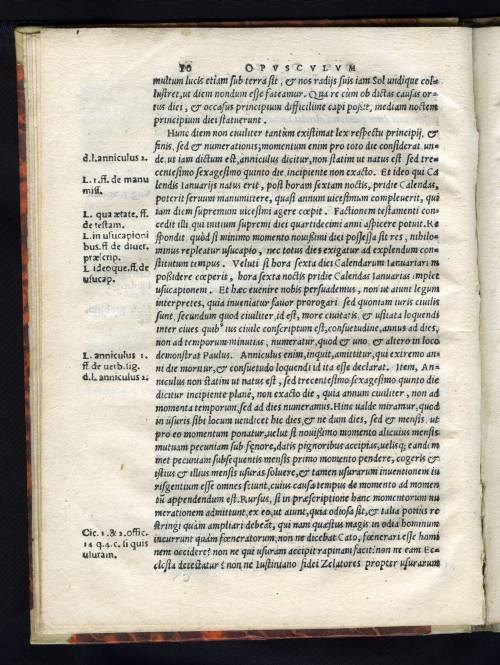 70 OPVSCVLVM
multum lucis etiam sub terra sit, & nos radijs suis iam Sol undique col-
lustret, ut diem nondum esse fateamur. Qua re cùm ob dictas causas or-
tus diei, & occasus principium difficiline capi possit, mediam noctem
principium diei statuerunt.
Hunc diem non ciuiliter tantùm existimat lex respectu principij, &
finis, sed & numerationis; momentum enim pro toto die considerat. un-
d.l.anniculus 2.
de, ut iam dictum est, anniculus dicitur, non statim ut natus est sed tre-
centesimo sexagesimo quinto die incipiente non exacto. Et ideo qui Ca
L. 1. ff. de manu
miss.
lendis Ianuarijs natus erit, post horam sextam noctis, pridie Calendas,
poterit seruum manumittere, quasi annum uicesimum compleuerit, qui
iam diem supremum uicesimi agere coepit. Factionem testamenti con-
L. qua ætate. ff.
de testam.
cedit illi, qui initium supremi diei quartidecimi anni aspicere potuit. Re
L. in usucapioni
bus. ff. de diuer.
præscrip.
spondit quòd si minimo momento nouissimi diei possessa sit res, nihilo-
minus repleatur usucapio, nec totus dies exigatur ad explendum con-
stitutum tempus. Veluti si hora sexta diei Calendarum Ianuariarum
L. ideoque. ff. de
usucap.
possidere coeperit, hora sexta noctis pridie Calendas Ianuarias implet
usucapionem. Et hæc euenire nobis persuademus, non ut aiunt legum
interpretes, quia inueniatur fauor prorogari sed quoniam iuris ciuilis
sunt, secundum quod ciuiliter, id est, more ciuitatis, & usitata loquendi
inter ciues quibus ius ciuile conscriptum est, consuetudine, annus ad dies,
non ad temporum minutias, numeratur, quod & uno, & altero in loco
L. anniculus 1.
ff de uerb. sig.
demonstrat Paulus. Anniculus enim, inquit, amittitur, qui extremo an-
ni die moritur, & consuetudo loquendi id ita esse declarat. Item, An-
d. l. anniculus 2.
niculus non statim ut natus est, sed trecentesimo sexagesimo quinto die
dicitur incipiente planè, non exacto die, quia annum ciuiliter, non ad
momenta temporum, sed ad dies numeramus. Hinc ualde miramur, quod
in usuris sibi locum uendicet hic dies, & ne dum dies, sed & mensis, ut
pro eo momentum ponatur, uelut si nouissimo momento alicuius mensis
mutuam pecuniam sub fenore, datis pignoribus accipias, uelisq; eandem
met pecuniam subsequentis mensis primo momento pendere, cogeris &
istius & illius mensis usuras soluere, & tamen usurarum inuentionem iu
risgentium esse omnes sciunt, cuius causa tempus de momento ad momen
tum appendendum est. Rursus, si in præscriptione hanc momentorum nu
merationem admittunt, ex eo, ut aiunt, quia odiosa sit, & talia potius re
Cic. 1. & 2. offic.
14 q. 4. c. si quis
usuram.
stringi quàm ampliari debeant, qui nam quæstus magis in odia hominum
incurrunt quàm foeneratorum, non ne dicebat Cato, foenerari esse homi
nem occidere? non ne qui usuram accipit rapinam facit? non ne eam Ec-
clesia detestatur? non ne Iustiniano fidei Zelatores propter usurarum